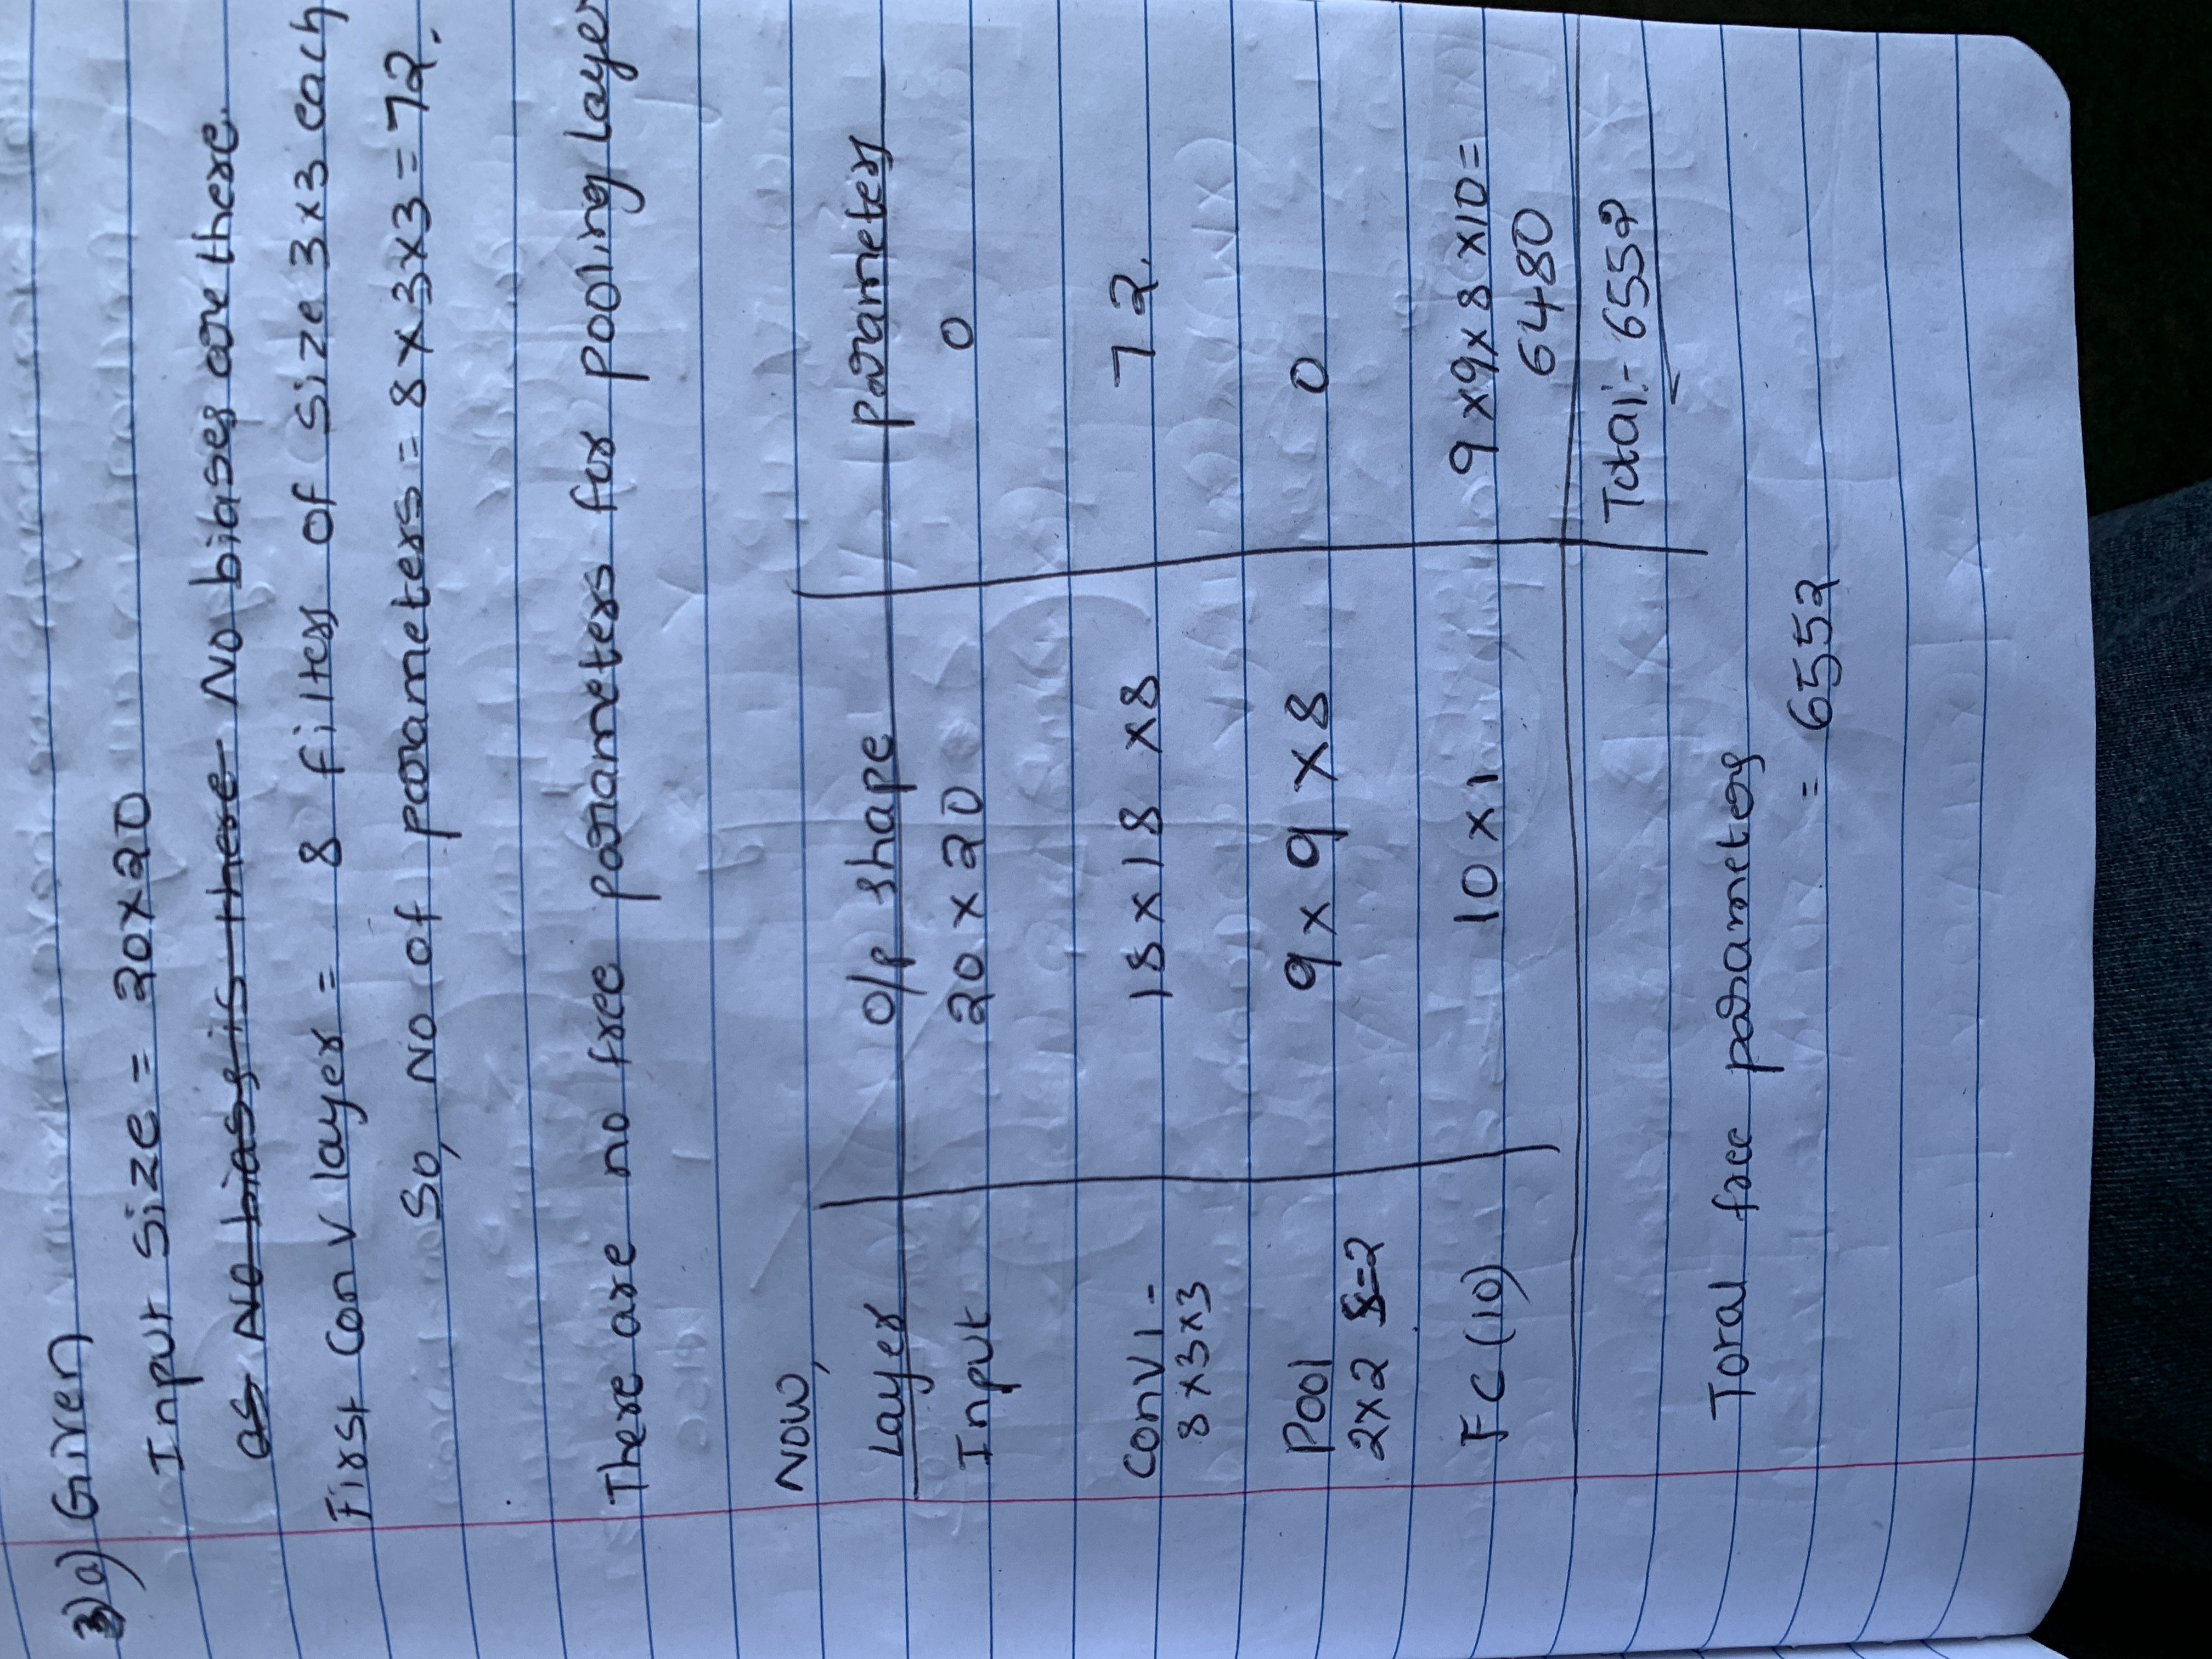 3) a) Given
Input size = 20x20
as No biass is there No biases are there.
First Conv layer = 8 filters of size 3x3 each
So, No of parameters = 8x3x3=72.
There are no free parameters for pooling Laye
Now,
Layer o/p shape parameters
Input 20 x 20 0
Conv1 - 18x18 x8 72.
8x3x3
Pool 9x 9 x8 0
2x2 S=2
FC (10) 10 x 1 9x9x8 x10=
6480
Total:- 6552
Total free parameters
= 6552